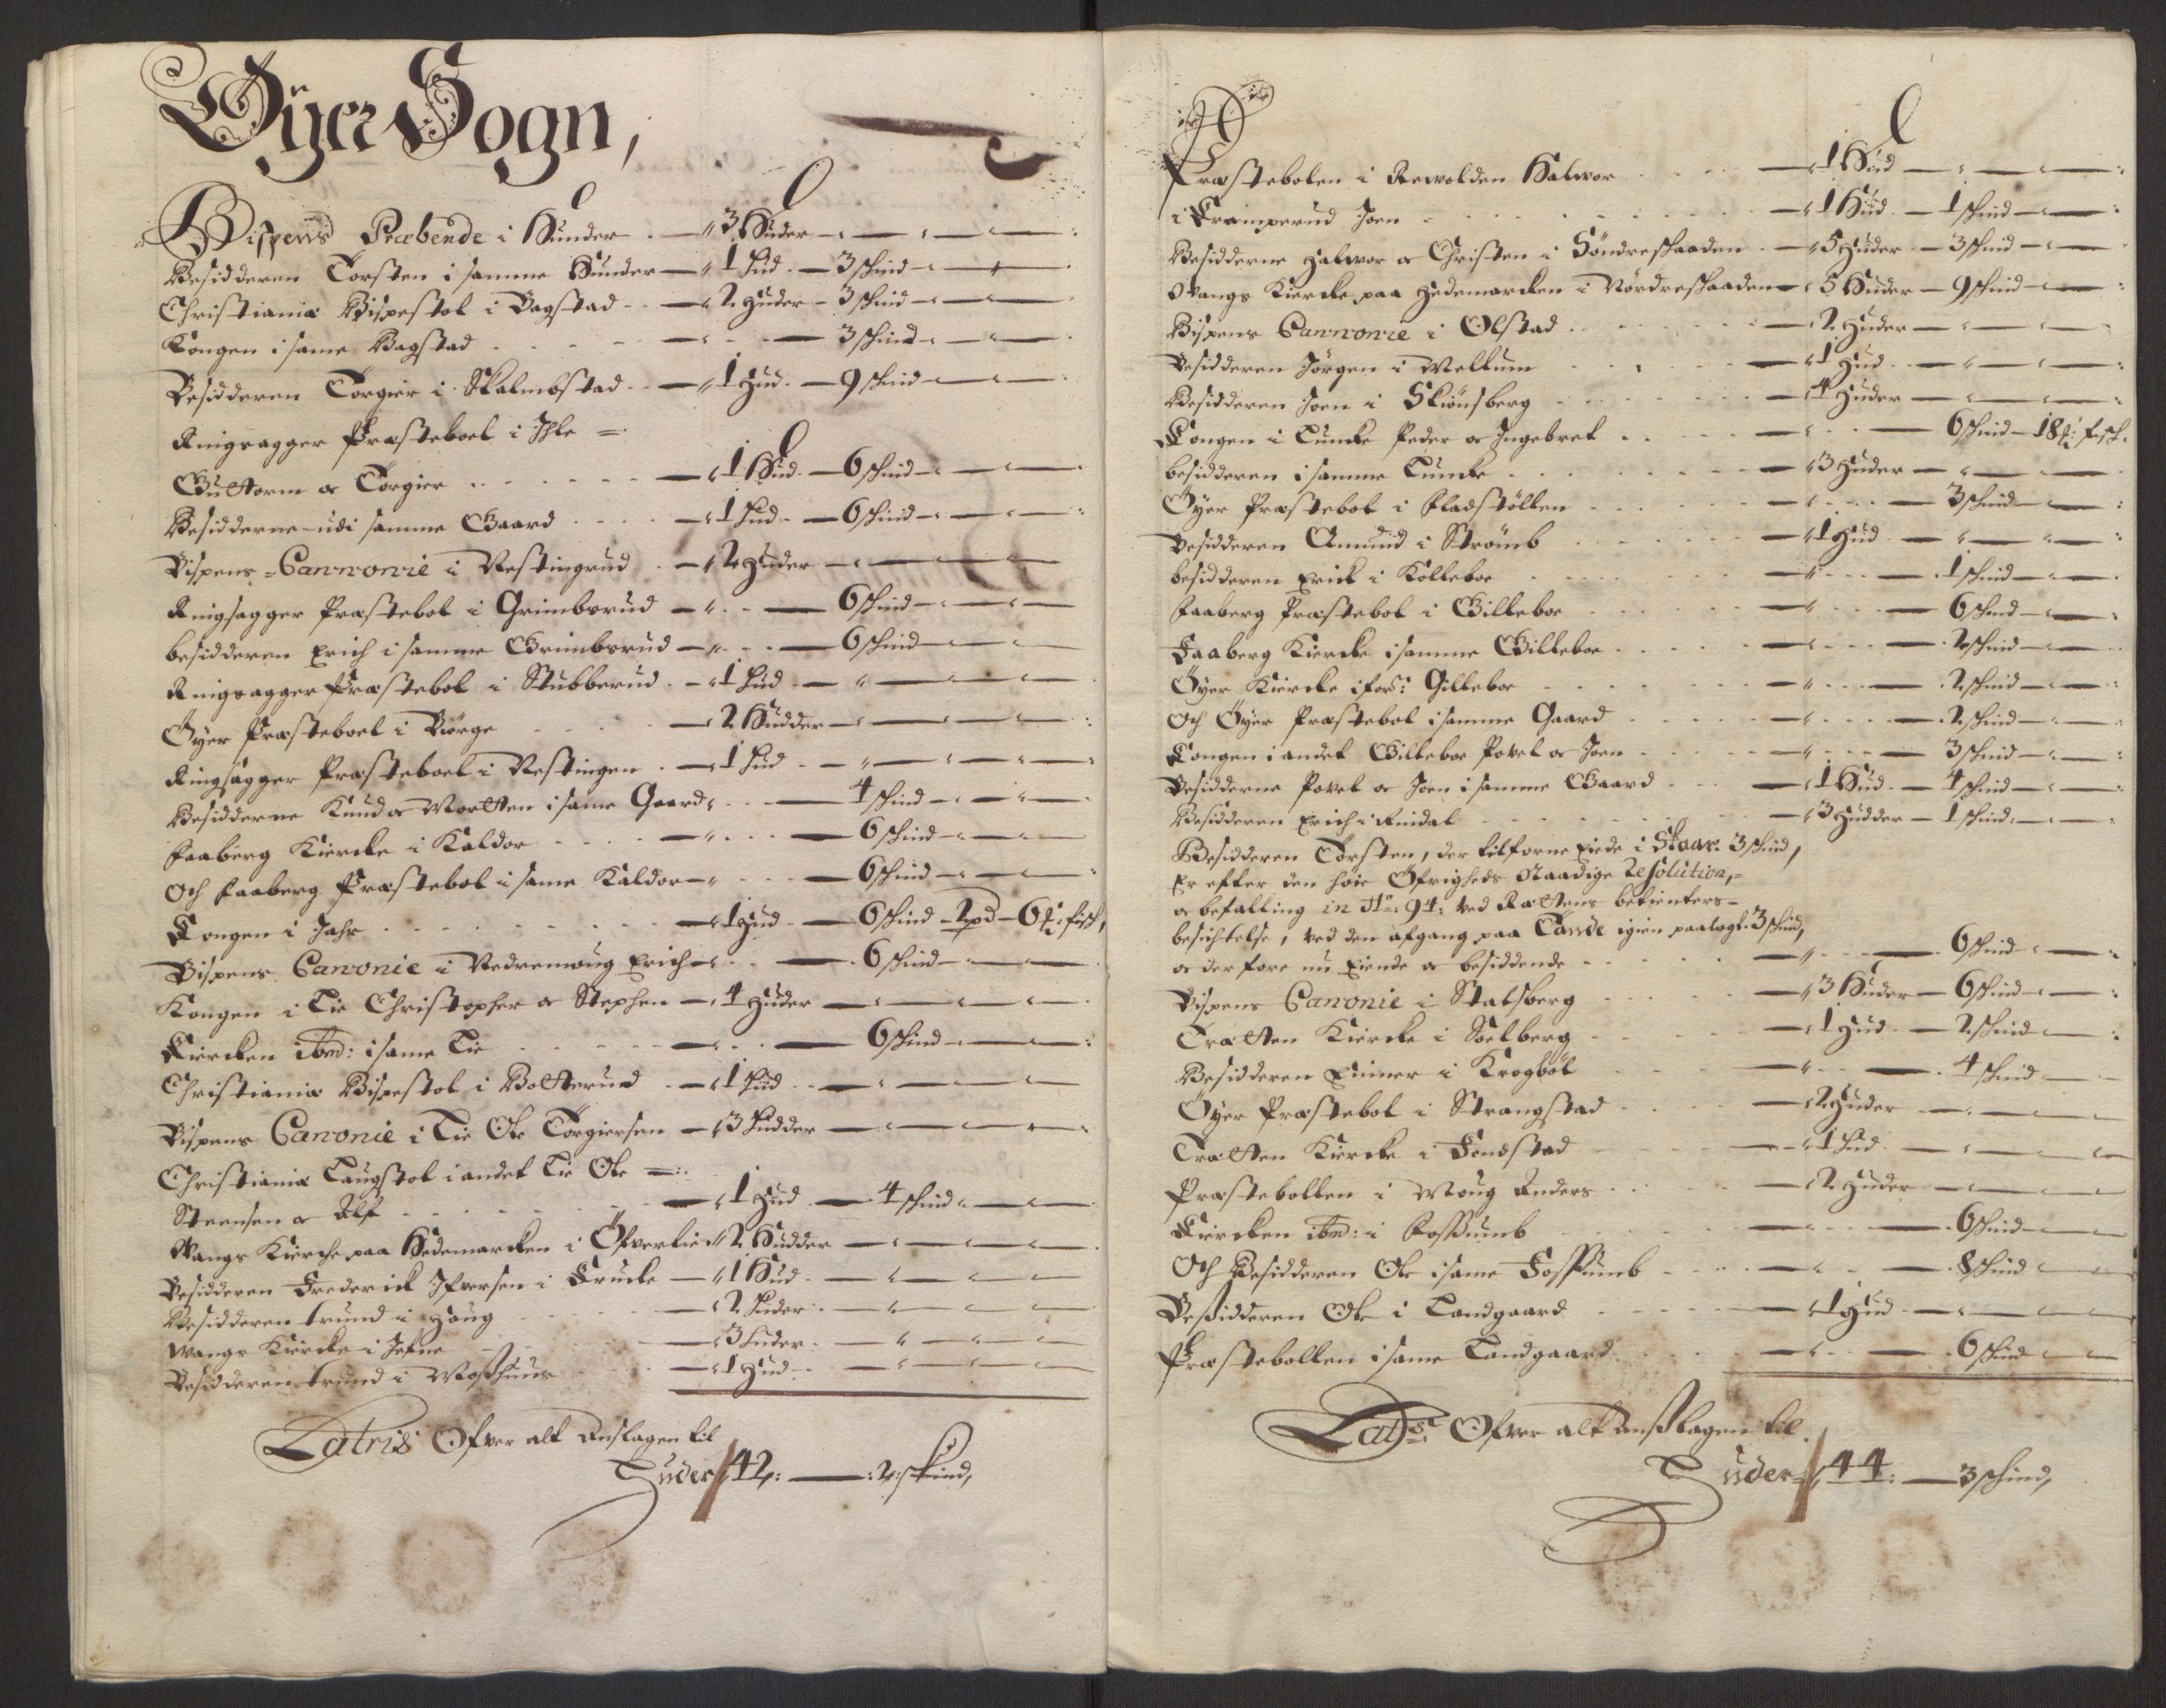 Øÿer Sogn,
Bispens Præbende i Hunder — 3 Huder
Besidderen Torsten i samme Hunder — 1 Hud — 3 schind
Christiania Bispestol i Bagstad — 2 Huder — 3 schind
Kongen i same Bagstad — 3 schind
Besidderen Torgier i Skalmbstad — 1 Hud — 9 schind
Ringsagger Præsteboel i Ihle =
Guttorm oc Torgier — 1 Hud — 6 schind
Besidderne udi samme Gaard — 1 Hud — 6 schind
Bispens Cannonie i Restingrud — 2 Huder
Ringsagger Præstebol i Grimbsrud — 6 schind
besidderen Erich i samme Grimbsrud — 6 schind
Ringsagger Præstebol i Stubberud — 1 Hud
Öÿer Præsteboel i Börge — 2 Hudder
Ringsagger Præsteboel i Restingen — 1 Hud
Besidderne Knud oc Morten i same Gaard — 4 schind
Faaberg Kiercke i Kaldor — 6 schind
Och Faaberg Præstebol i same Kaldor — 6 schind
Kongen i Jahr — 1 Hud — 6 schind — 2 pd — 6 fisch,
Bispens Canonie i Nedremoug Erich — 6 schind
Kongen i Lie Christopher oc Stephen — 4 Huder
Kiercken ibd: i same Lie — 6 schind
Christiania Bispestol i Botterud — 1 Hud
Bispens Canonie i Lie Ole Torgiersen — 3 Hudder
Christiania Laugstol i andet Lie Ole =
Steensen oc Alf — 1 Hud — 4 schind
Wangs Kierche paa Hedemarcken i Öfverlie — 2 Hudder
Besidderen Frederick Ifversen i Krucke — 1 Hud
Besidderen trund i Houg — 2 Huder
Wangs Kiercke i Jefne — 3 Huder
Besidderen trund i Moshuus — 1 Hud
Latris Ofver alt Anslagen til
Huder 42: — 2: schind,
Præstebolen i Rewolden Halwor — 1 Hud
i Kramperud Joen — 1 Hud — 1 schind
Besidderne Halwor oc Christen i Söndreskaaden — 5 Huder — 3 schind
Wangs Kiercke paa Hedemarcken i Nördreskaaden — 5 Huder — 9 schind
Bispens Cannonie i Olstad — 2 Huder
Besidderen Jörgen i Mellum — 1 Hud
Besidderen Joen i Skiönsberg — 4 Huder
Kongen i Luncke Peder oc Ingebret — 6 schind — 18 fisch.
besidderen i samme Luncke — 3 Huder
Öÿer Præstebol i Fladstöllen — 3 schind
Besidderen Amund i Strömb — 1 Hud
besidderen Erick i Kolleboe — 1 schind
Faaberg Præstebol i Gilleboe — 6 schind
Faaberg Kiercke i samme Gilleboe — 2 schind
Öÿer Kiercke i fors: Gilleboe — 2 schind
Och Öÿer Præstebol i samme Gaard — 2 schind
Kongen i andet Gilleboe Povel oc Joen — 3 schind
Besidderne Povel oc Joen i samme Gaard — 1 Hud — 4 schind
Besidderen Erich i Rindal — 3 Hudder — 1 schind
Besidderen Torsten, der tilforne Eiede i Skaar 3 schind,
Er efter den höie Öfrigheds Naadige Resolution,
oc befalling in Ao: 94: ved Rættens betienters
besichtelse, ved den afgang paa Lande igien paalagt 3 schind,
oc derfore nu Eiende oc besiddende — 6 schind
Bispens Canonie i Stalsberg — 3 Huder — 6 schind
Trætten Kiercke i Soelberg — 1 Hud — 2 schind
Besidderen Einner i Krogböl — 4 schind
Öÿer Præstebol i Strangstad — 2 Huder
Trætten Kiercke i Fondstad — 1 Hud
Præstebollen i Moug Anders — 2 Huder
Kiercken ibd: i Fossumb — 6 schind
Och Besidderen Ole i same Fossumb — 8 schind
Besidderen Ole i Landgaard — 1 Hud
Præstebollen i same Landgaard — 6 schind
Lats Ofver alt Anslagen til
Huder 44: — 3 schind,